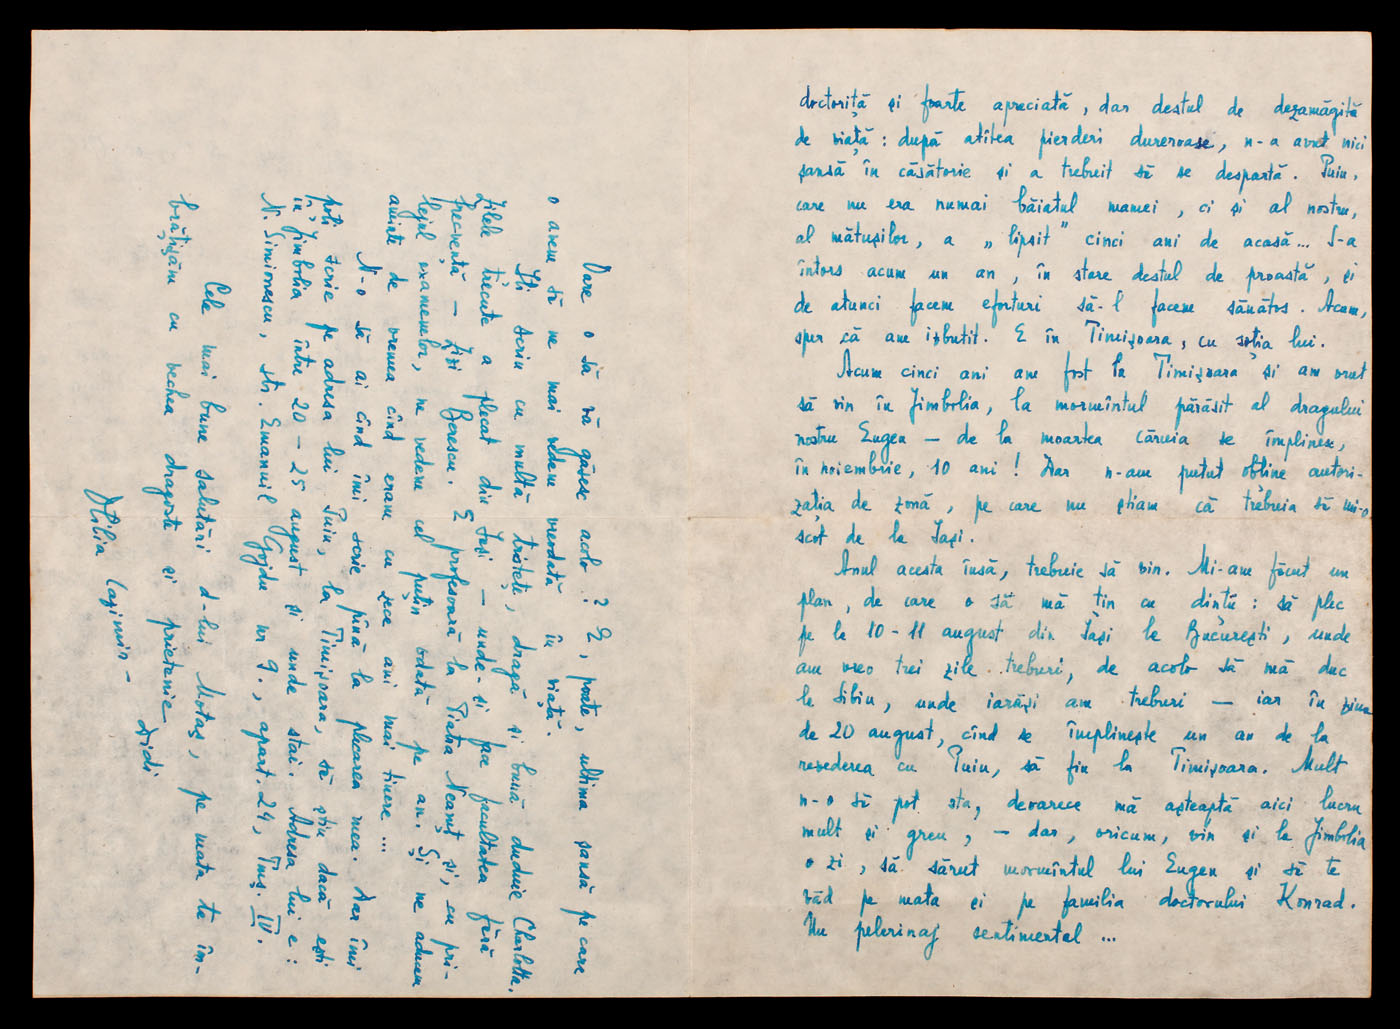 doctoriță și foarte apreciată, dar destul de dezamăgită
de viață: după atîtea pierderi dureroase, n-a avut nici
șansă în căsătorie și a trebuit să se despartă. Puiu,
care nu era numai băiatul mamei, ci și al nostru,
al mătușilor, a „lipsit” cinci ani de acasă... S-a
întors acum un an, în stare destul de proastă, și
de atunci facem eforturi să-l facem sănătos. Acum,
sper că am izbutit. E în Timișoara, cu soția lui.
Acum cinci ani am fost la Timișoara și am vrut
să vin în Jimbolia, la mormîntul părăsit al dragului
nostru Eugen — de la moartea căruia se împlinesc,
în noiembrie, 10 ani! Dar n-am putut obține autori-
zația de zonă, pe care nu știam că trebuia să mi-o
scot de la Iași.
Anul acesta însă, trebuie să vin. Mi-am făcut un
plan, de care o să mă țin cu dinții: să plec
pe la 10-11 august din Iași la București, unde
am vreo trei zile treburi, de acolo să mă duc
la Sibiu, unde iarăși am treburi — iar în ziua
de 20 august, cînd se împlinește un an de la
revederea cu Puiu, să fiu la Timișoara. Mult
n-o să pot sta, deoarece mă așteaptă aici lucru
mult și greu, — dar, oricum, vin și la Jimbolia
o zi, să sărut mormîntul lui Eugen și să te
văd pe mata și pe familia doctorului Konrad.
Un pelerinaj sentimental ...
Oare o să vă găsesc acolo? E, poate, ultima șansă pe care
o avem să ne mai vedem vreodată în viață.
Îți scriu cu multă tristețe, dragă și bună duduie Charlotta.
Zilele trecute a plecat din Iași — unde-și face facultatea fără
frecvență — Zizi Berescu. E profesoară la Piatra Neamț și, cu pri-
lejul examenelor, ne vedem cel puțin odată pe an. Și ne aducem
aminte de vremea cînd eram cu zece ani mai tinere ...
N-o să ai cînd îmi scrie pînă la plecarea mea. Dar îmi
poți scrie pe adresa lui Puiu, la Timișoara, să știu dacă ești
în Jimbolia între 20-25 august și unde stai. Adresa lui e:
N. Simionescu, str. Emanuil Gojdu nr 9., apart. 24, Timș. IV.
Cele mai bune salutări d-lui Motaș, pe mata te îm-
brățișăm cu vechea dragoste și prietenie
Otilia Cazimir - Didi